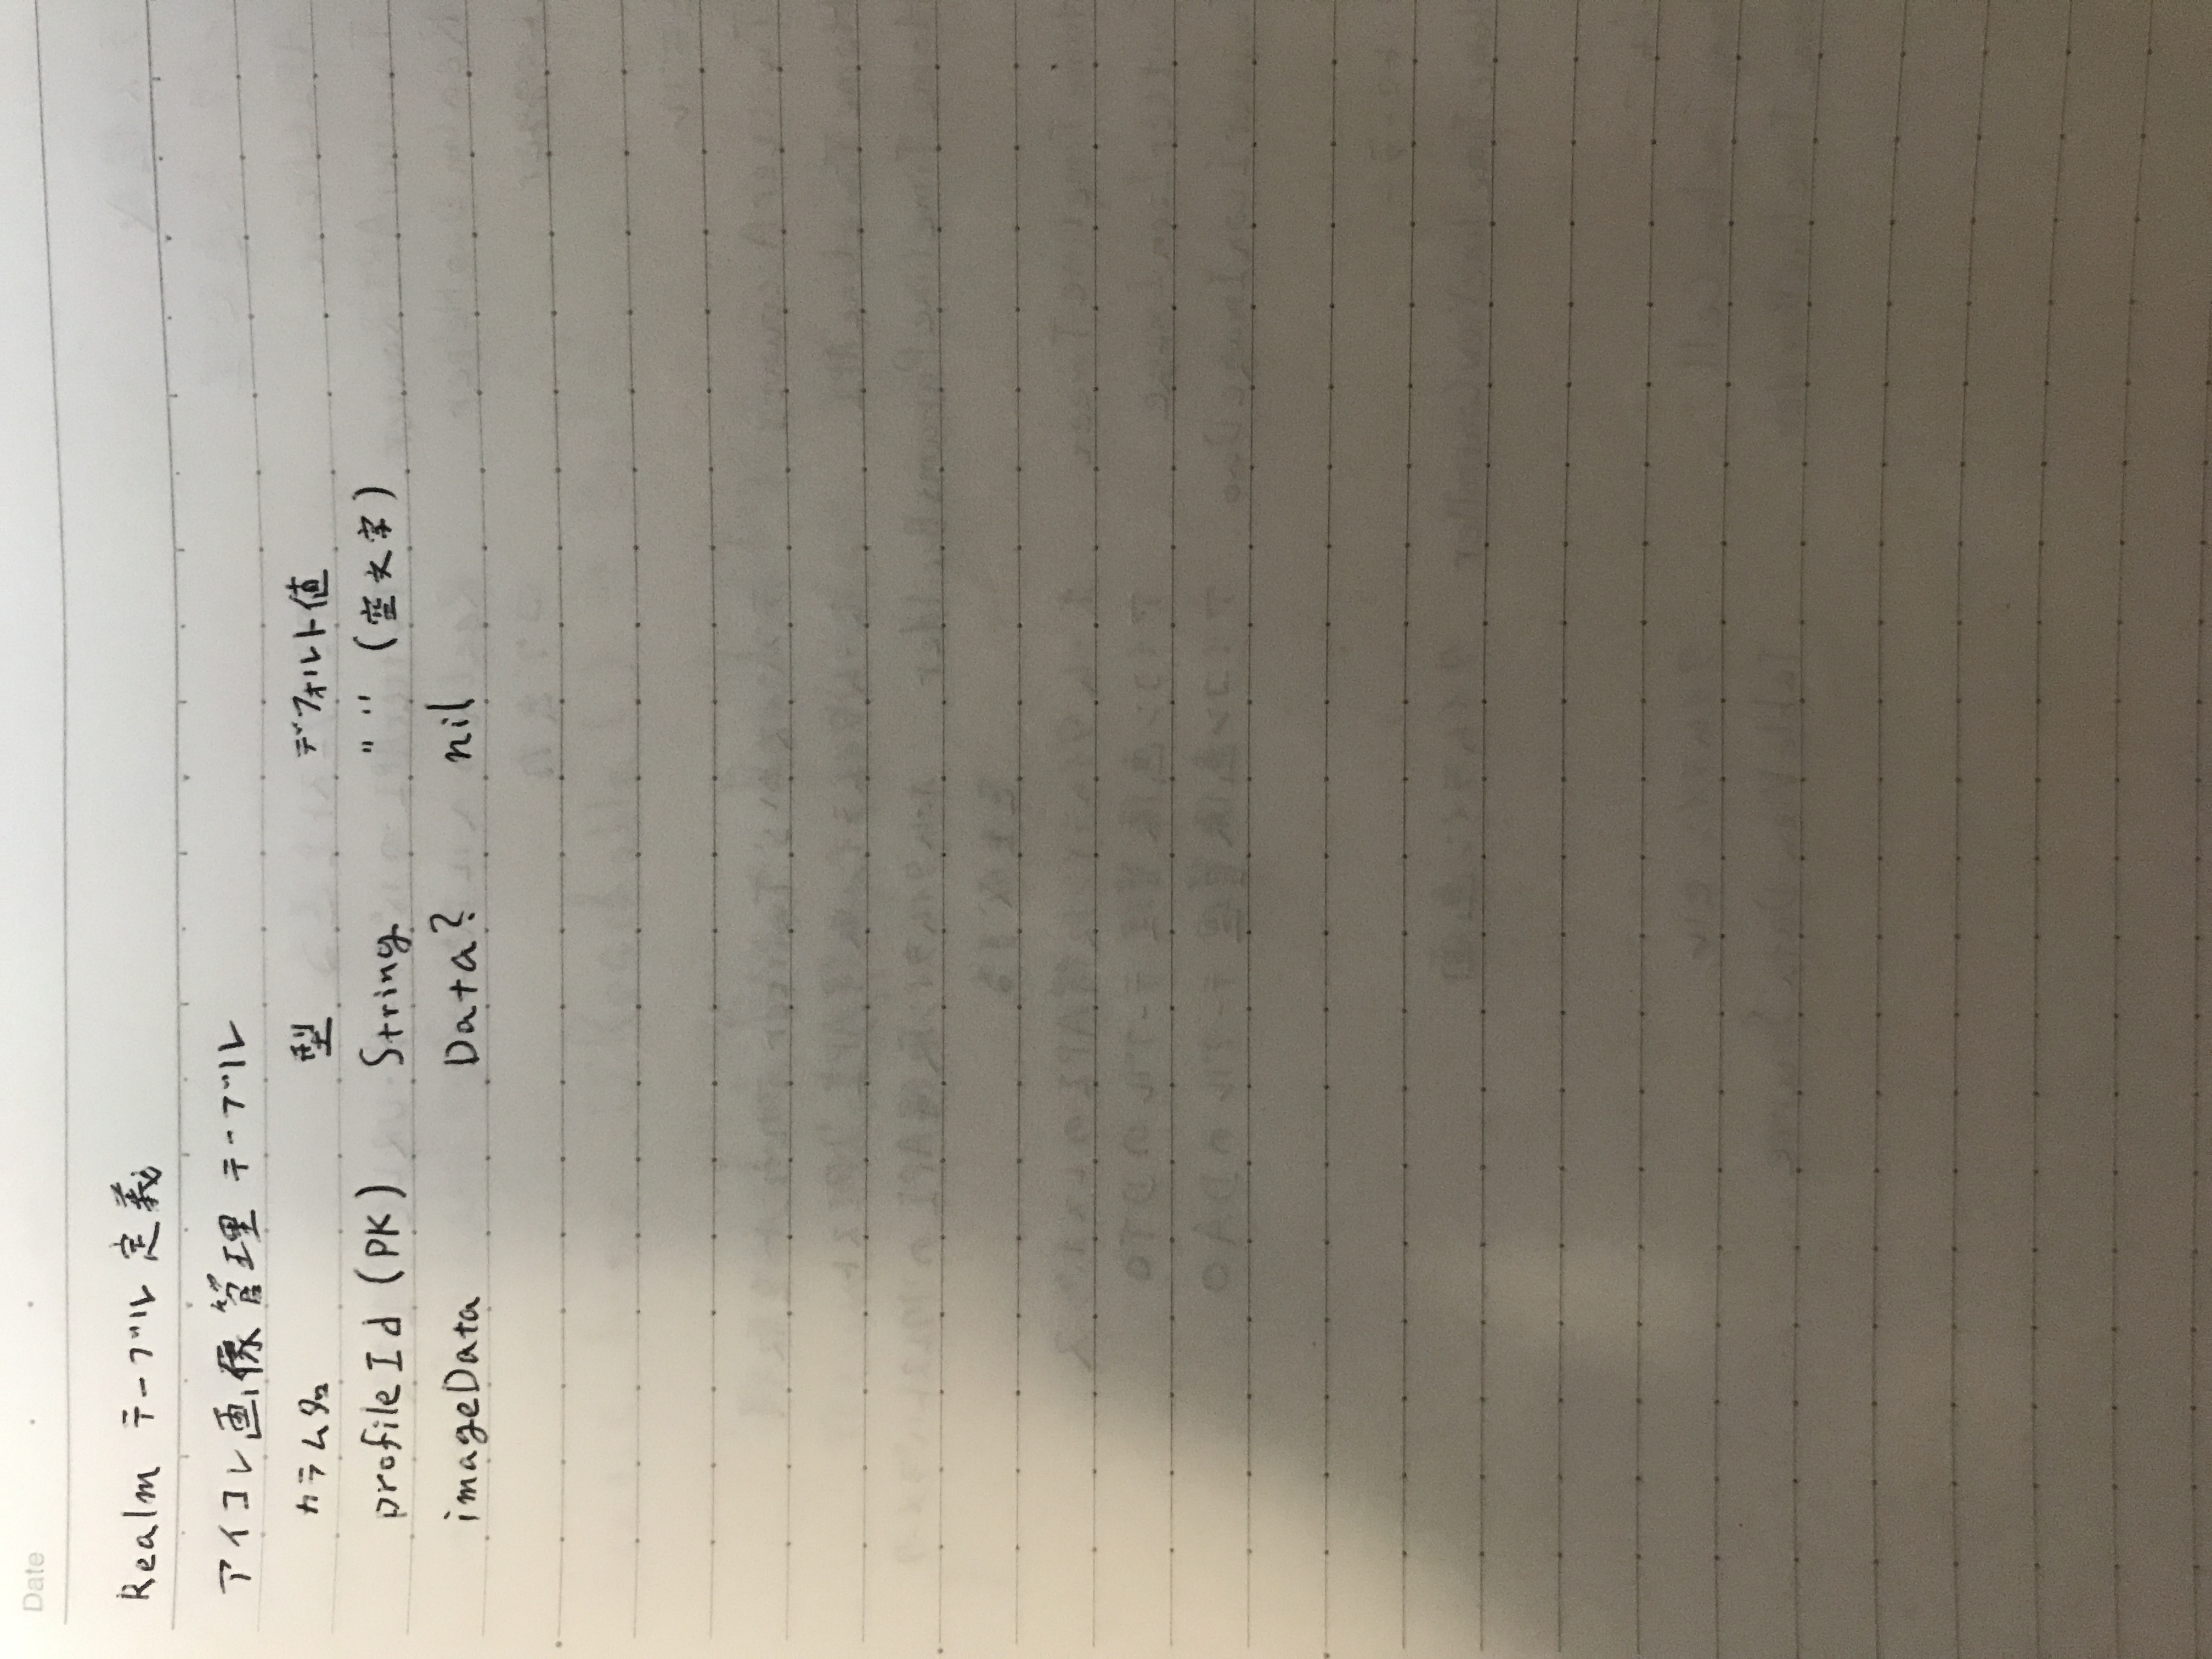 Date
Realm テーブル定義
アイコン画像管理テーブル
カラム名 型 デフォルト値
profileId (PK) String "" (空文字)
imageData Data? nil